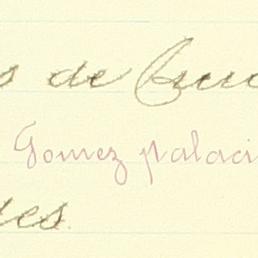 s de
Gomez palaci
es